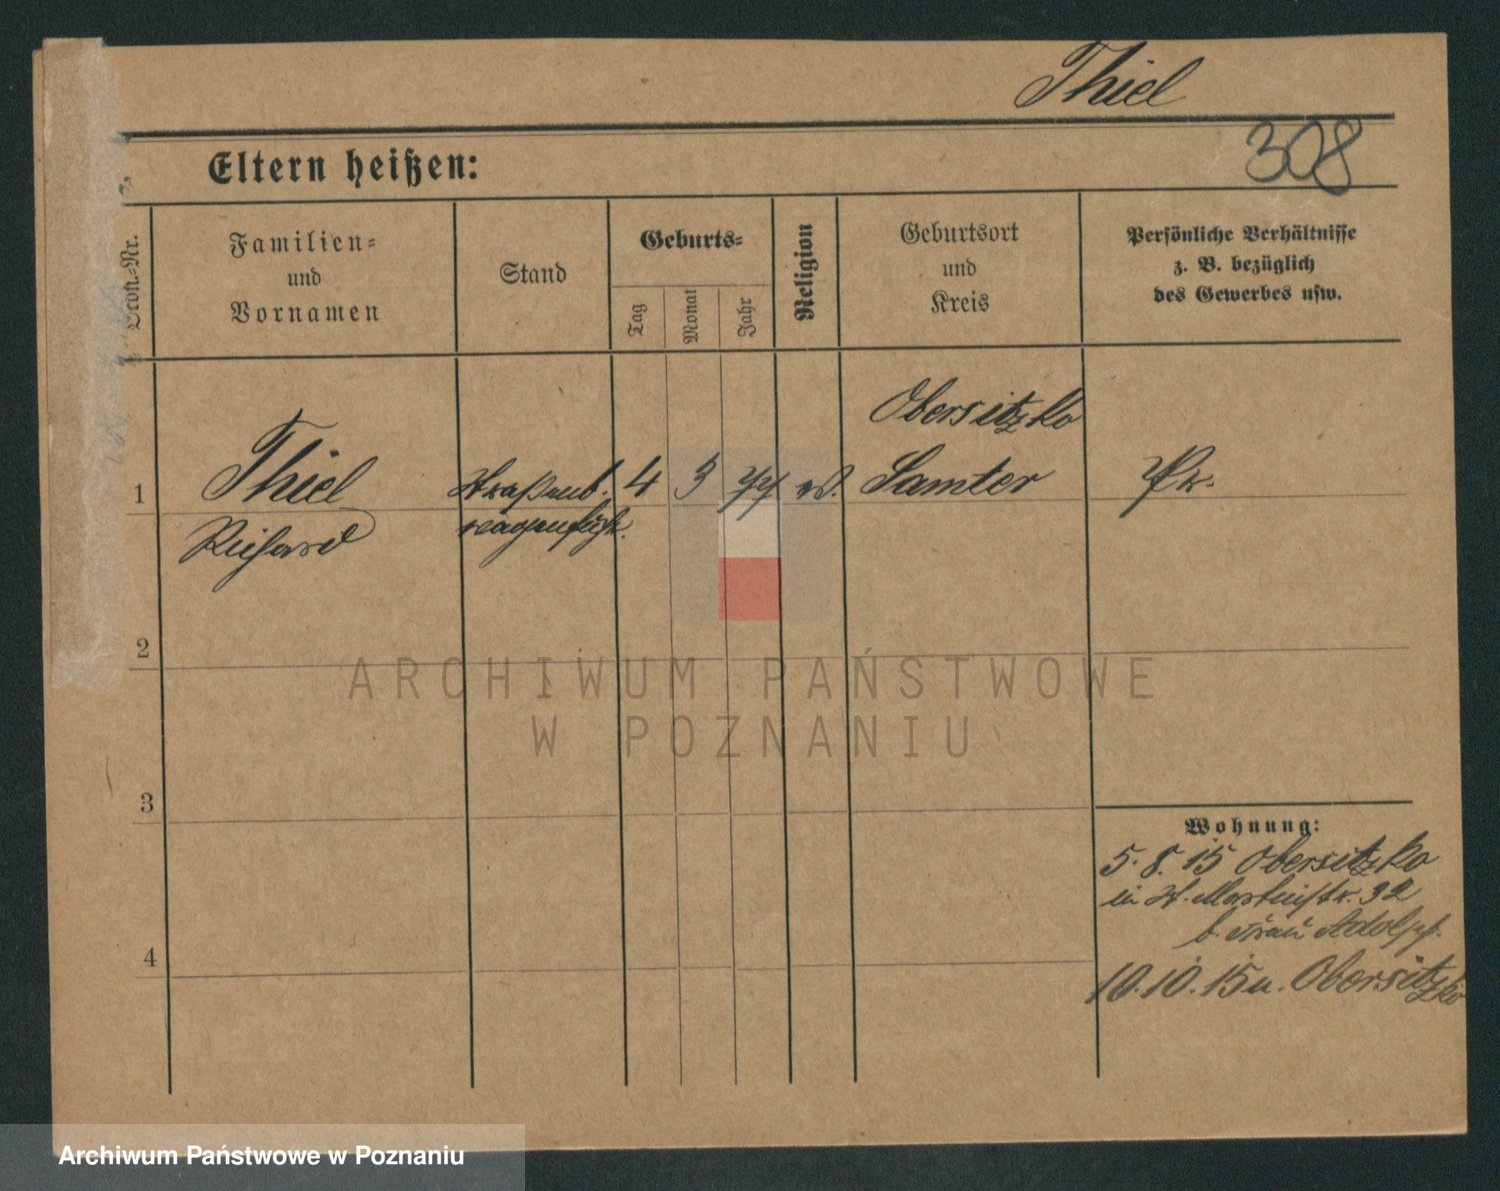 Thiel
308
Eltern heißen:
Familien=
und
Vornamen
Stand
Geburts=
Tag
Monat
Jahr
Religion
Geburtsort
und
Kreis
Persönliche Verhältnisse
z. B. bezüglich
des Gewerbes usw.
1
Thiel
Richard
Straßenb.
wagenführ.
4
3
Obersitzko
Samter
Pr.
2
3
4
Wohnung:
5. 8. 15 Obersitzko
in St. Martinstr. 32
b. Frau Adolph.
10. 10. 15 n. Obersitzko
ARCHIWUM PAŃSTWOWE
W POZNANIU
Archiwum Państwowe w Poznaniu